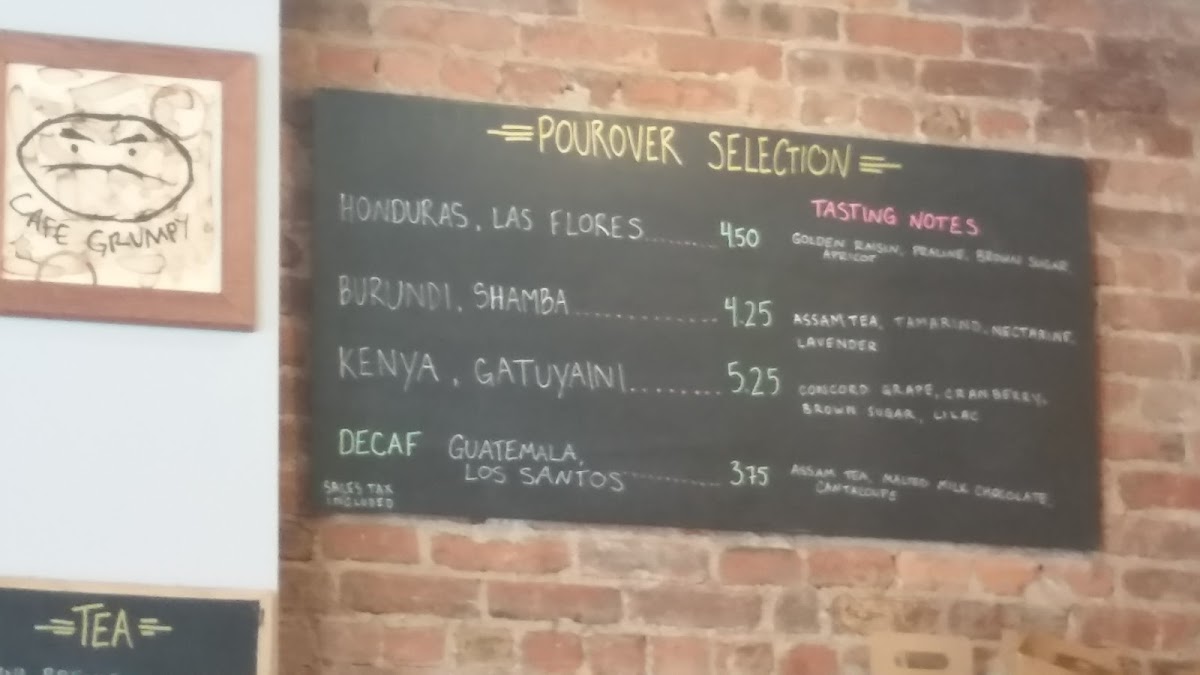 CAFE GRUMPY
POUROVER SELECTION
TASTING NOTES
HONDURAS, LAS FLORES........4.50
GOLDEN RAISIN, PRALINE, BROWN SUGAR,
APRICOT
BURUNDI, SHAMBA.............4.25
ASSAM TEA, TAMARIND, NECTARINE,
LAVENDER
KENYA, GATUYAINI........5.25
CONCORD GRAPE, CRANBERRY,
BROWN SUGAR, LILAC
DECAF GUATEMALA,
LOS SANTOS..............3.75
ASSAM TEA, MALTED MILK CHOCOLATE,
CANTALOUPE
SALES TAX
INCLUDED
TEA